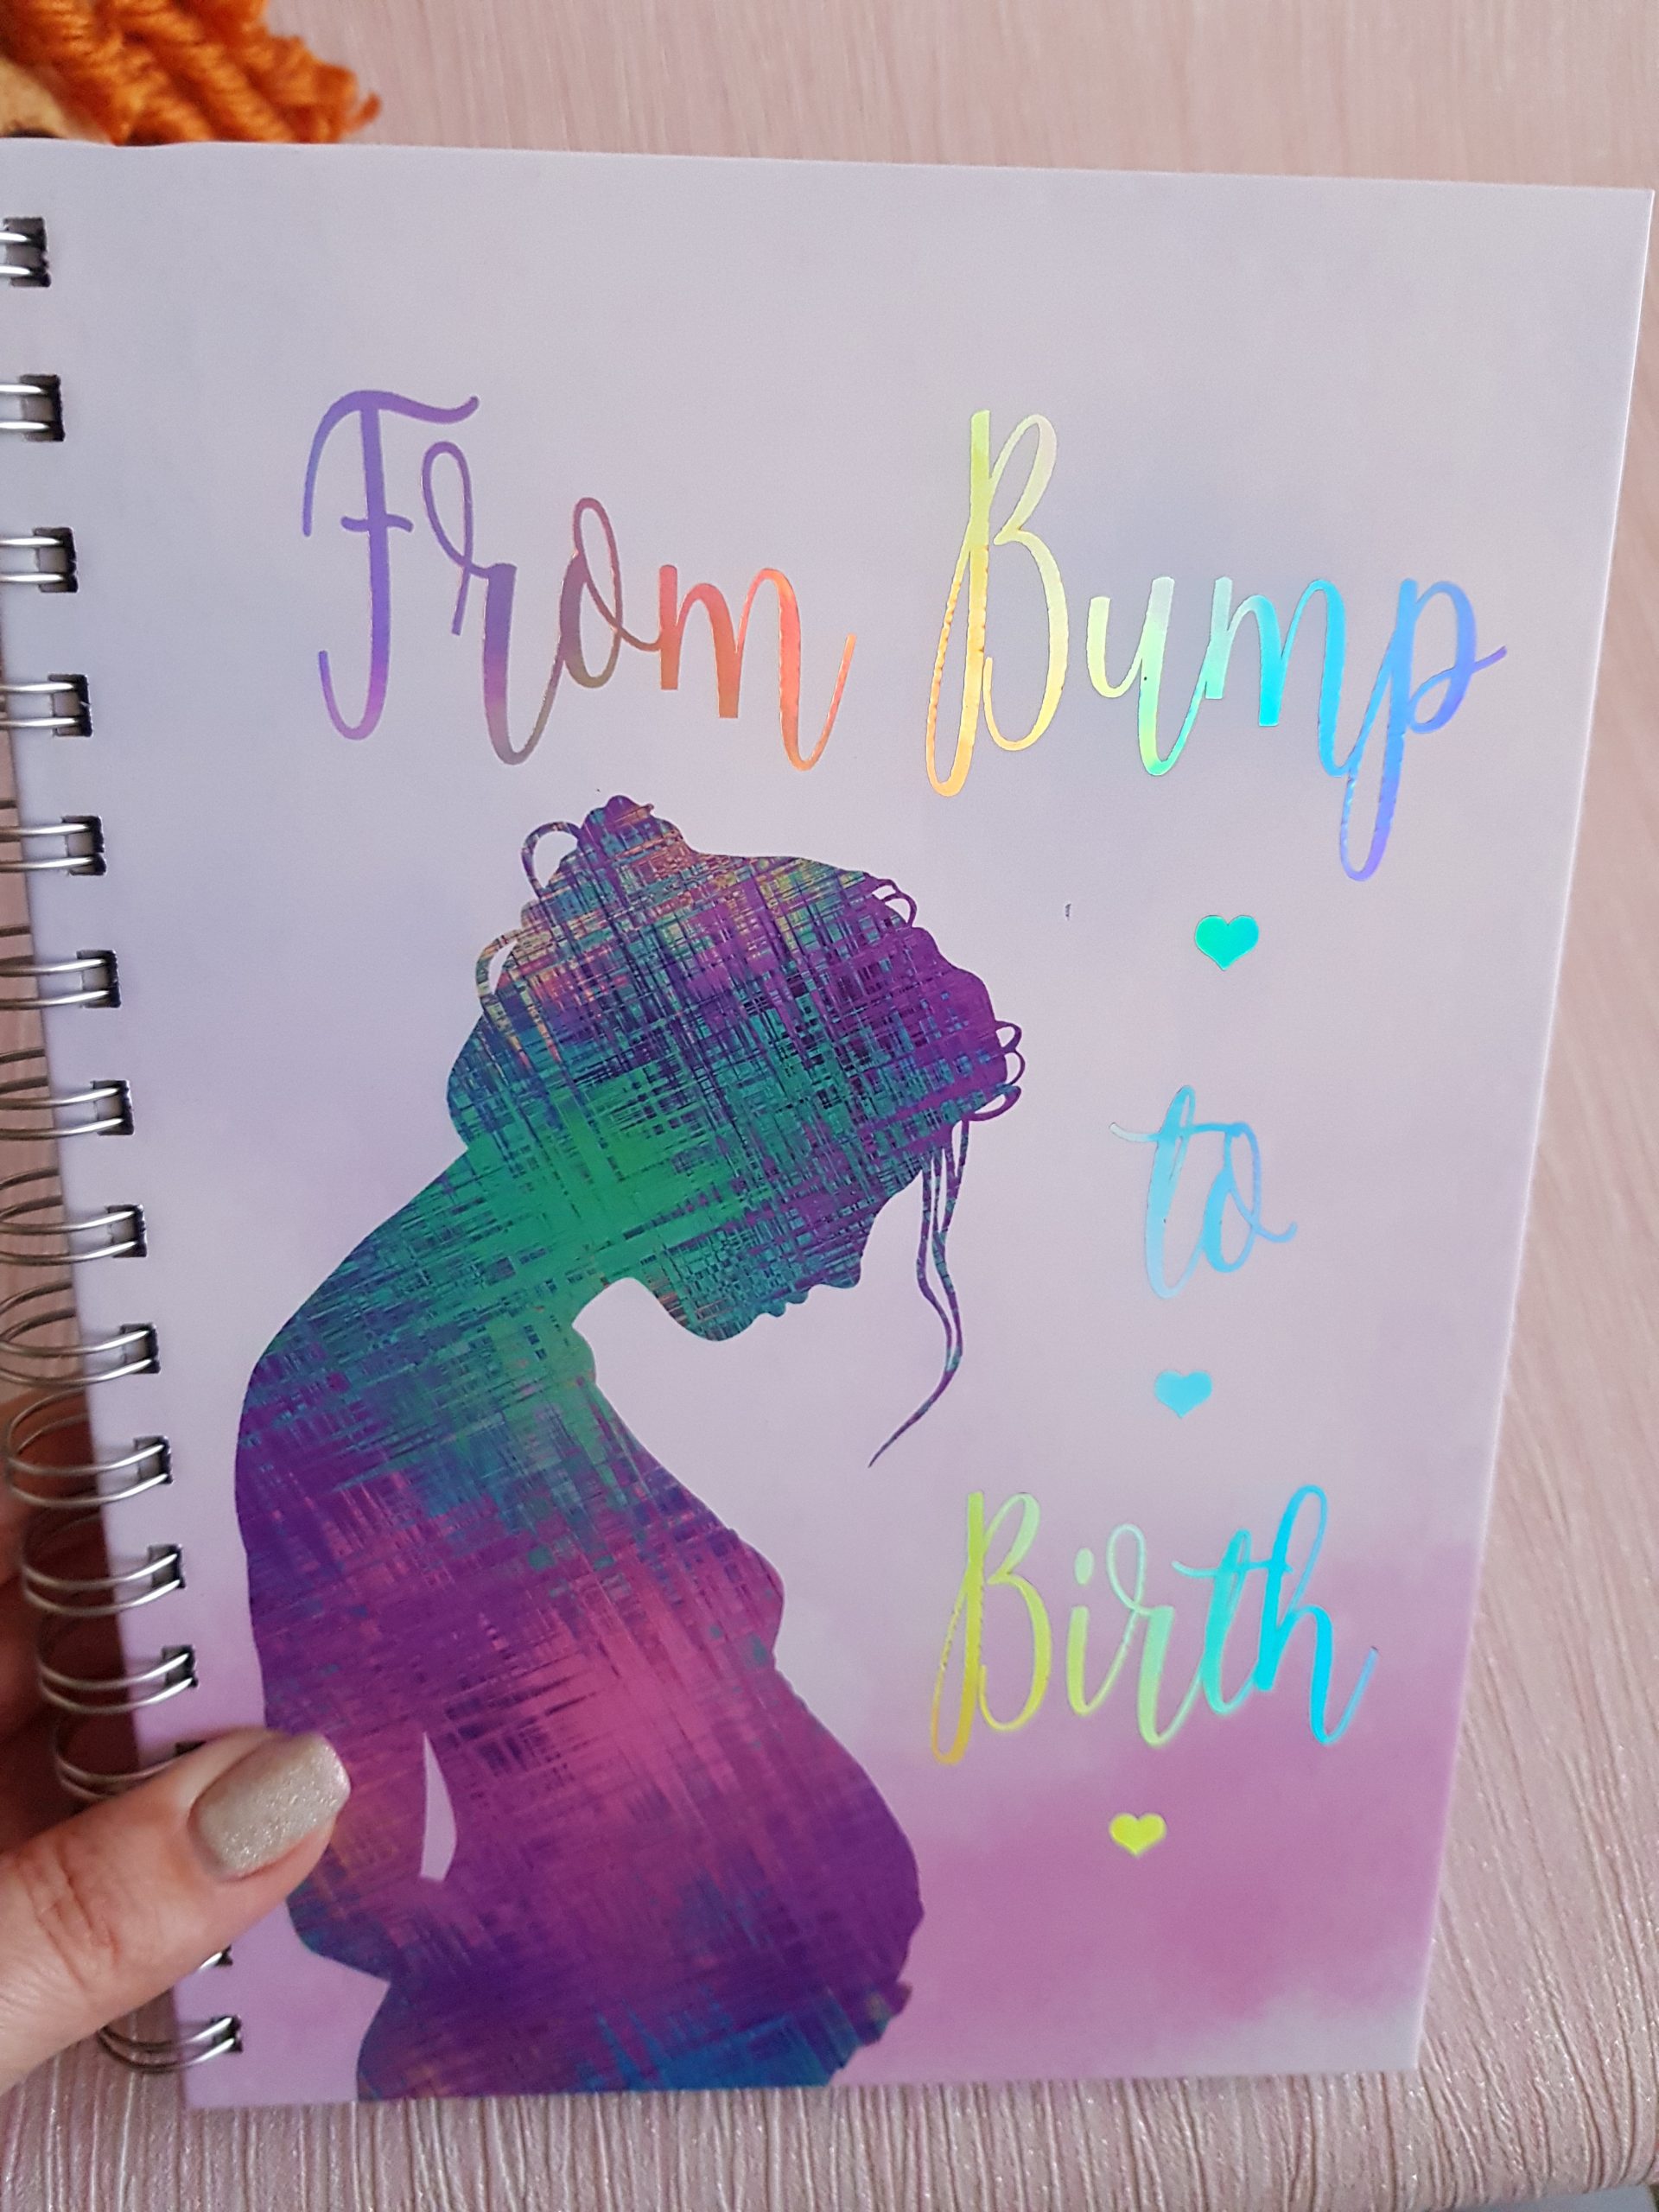 From Bump
to
Birth